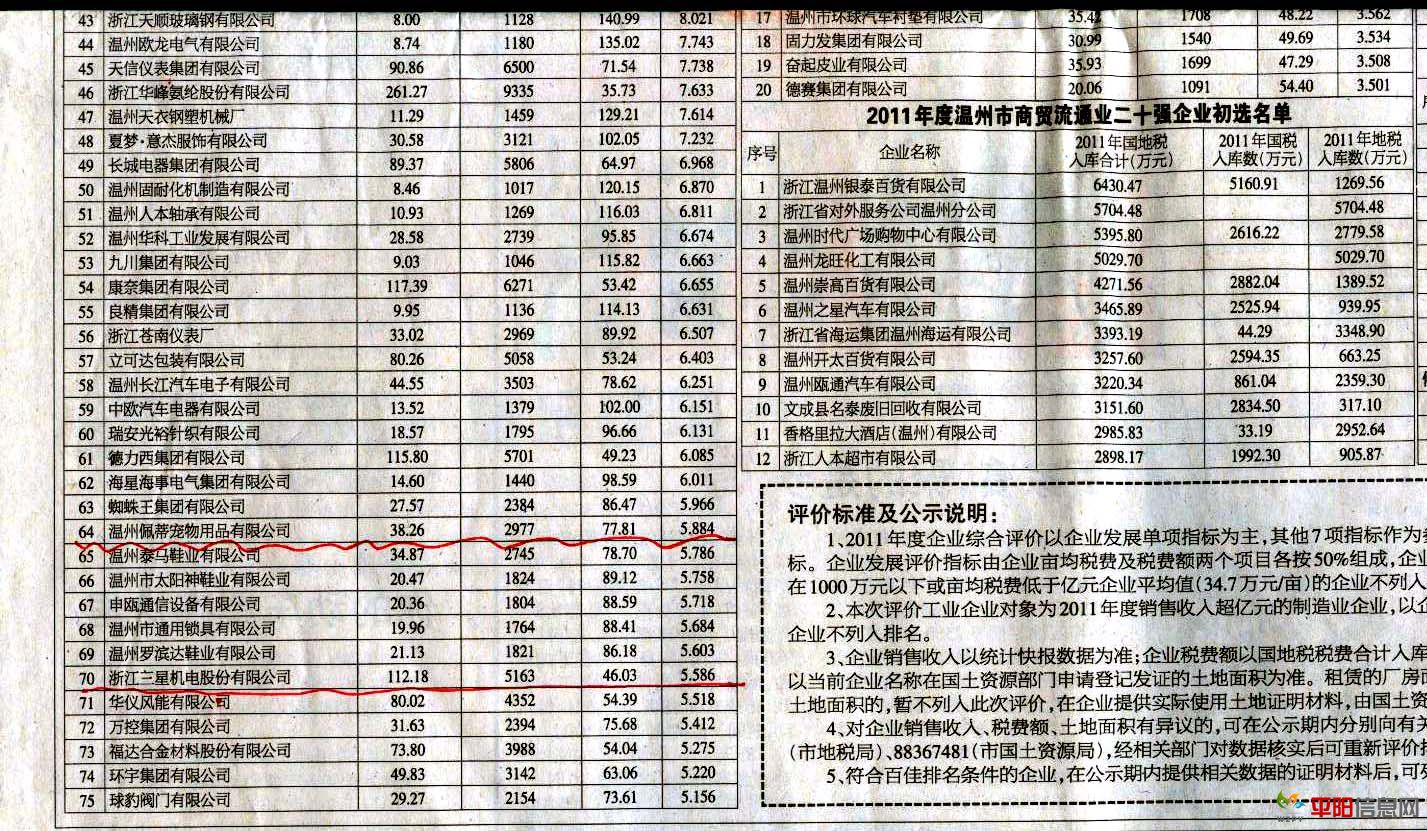 43 浙江天顺玻璃钢有限公司 8.00 1128 140.99 8.021
44 温州欧龙电气有限公司 8.74 1180 135.02 7.743
45 天信仪表集团有限公司 90.86 6500 71.54 7.738
46 浙江华峰氨纶股份有限公司 261.27 9335 35.73 7.633
47 温州天衣钢塑机械厂 11.29 1459 129.21 7.614
48 夏梦·意杰服饰有限公司 30.58 3121 102.05 7.232
49 长城电器集团有限公司 89.37 5806 64.97 6.968
50 温州固耐化机制造有限公司 8.46 1017 120.15 6.870
51 温州人本轴承有限公司 10.93 1269 116.03 6.811
52 温州华科工业发展有限公司 28.58 2739 95.85 6.674
53 九川集团有限公司 9.03 1046 115.82 6.663
54 康奈集团有限公司 117.39 6271 53.42 6.655
55 良精集团有限公司 9.95 1136 114.13 6.631
56 浙江苍南仪表厂 33.02 2969 89.92 6.507
57 立可达包装有限公司 80.26 5058 53.24 6.403
58 温州长江汽车电子有限公司 44.55 3503 78.62 6.251
59 中欧汽车电器有限公司 13.52 1379 102.00 6.151
60 瑞安光裕针织有限公司 18.57 1795 96.66 6.131
61 德力西集团有限公司 115.80 5701 49.23 6.085
62 海星海事电气集团有限公司 14.60 1440 98.59 6.011
63 蜘蛛王集团有限公司 27.57 2384 86.47 5.966
64 温州佩蒂宠物用品有限公司 38.26 2977 77.81 5.884
65 温州泰马鞋业有限公司 34.87 2745 78.70 5.786
66 温州市太阳神鞋业有限公司 20.47 1824 89.12 5.758
67 申瓯通信设备有限公司 20.36 1804 88.59 5.718
68 温州市通用锁具有限公司 19.96 1764 88.41 5.684
69 温州罗滨达鞋业有限公司 21.13 1821 86.18 5.603
70 浙江三星机电股份有限公司 112.18 5163 46.03 5.586
71 华仪风能有限公司 80.02 4352 54.39 5.518
72 万控集团有限公司 31.63 2394 75.68 5.412
73 福达合金材料股份有限公司 73.80 3988 54.04 5.275
74 环宇集团有限公司 49.83 3142 63.06 5.220
75 球豹阀门有限公司 29.27 2154 73.61 5.156
17 温州市环球汽车衬垫有限公司 35.42 1708 48.22 3.562
18 固力发集团有限公司 30.99 1540 49.69 3.534
19 奋起皮业有限公司 35.93 1699 47.29 3.508
20 德赛集团有限公司 20.06 1091 54.40 3.501
2011年度温州市商贸流通业二十强企业初选名单
序号 企业名称 2011年国地税入库合计(万元) 2011年国税入库数(万元) 2011年地税入库数(万元)
1 浙江温州银泰百货有限公司 6430.47 5160.91 1269.56
2 浙江省对外服务公司温州分公司 5704.48 5704.48
3 温州时代广场购物中心有限公司 5395.80 2616.22 2779.58
4 温州龙旺化工有限公司 5029.70 5029.70
5 温州崇高百货有限公司 4271.56 2882.04 1389.52
6 温州之星汽车有限公司 3465.89 2525.94 939.95
7 浙江省海运集团温州海运有限公司 3393.19 44.29 3348.90
8 温州开太百货有限公司 3257.60 2594.35 663.25
9 温州瓯通汽车有限公司 3220.34 861.04 2359.30
10 文成县名泰废旧回收有限公司 3151.60 2834.50 317.10
11 香格里拉大酒店(温州)有限公司 2985.83 33.19 2952.64
12 浙江人本超市有限公司 2898.17 1992.30 905.87
评价标准及公示说明:
1、2011年度企业综合评价以企业发展单项指标为主,其他7项指标作为
标。企业发展评价指标由企业亩均税费及税费额两个项目各按50%组成,企业
在1000万元以下或亩均税费低于亿元企业平均值(34.7万元/亩)的企业不列入
2、本次评价工业企业对象为2011年度销售收入超亿元的制造业企业,以
企业不列入排名。
3、企业销售收入以统计快报数据为准;企业税费额以国地税税费合计入库
以当前企业名称在国土资源部门申请登记发证的土地面积为准。租赁的厂房
土地面积的,暂不列入此次评价,在企业提供实际使用土地证明材料,由国土资
4、对企业销售收入、税费额、土地面积有异议的,可在公示期内分别向有关
(市地税局)、88367481(市国土资源局),经相关部门对数据核实后可重新评价
5、符合百佳排名条件的企业,在公示期内提供相关数据的证明材料后,可
平阳信息网